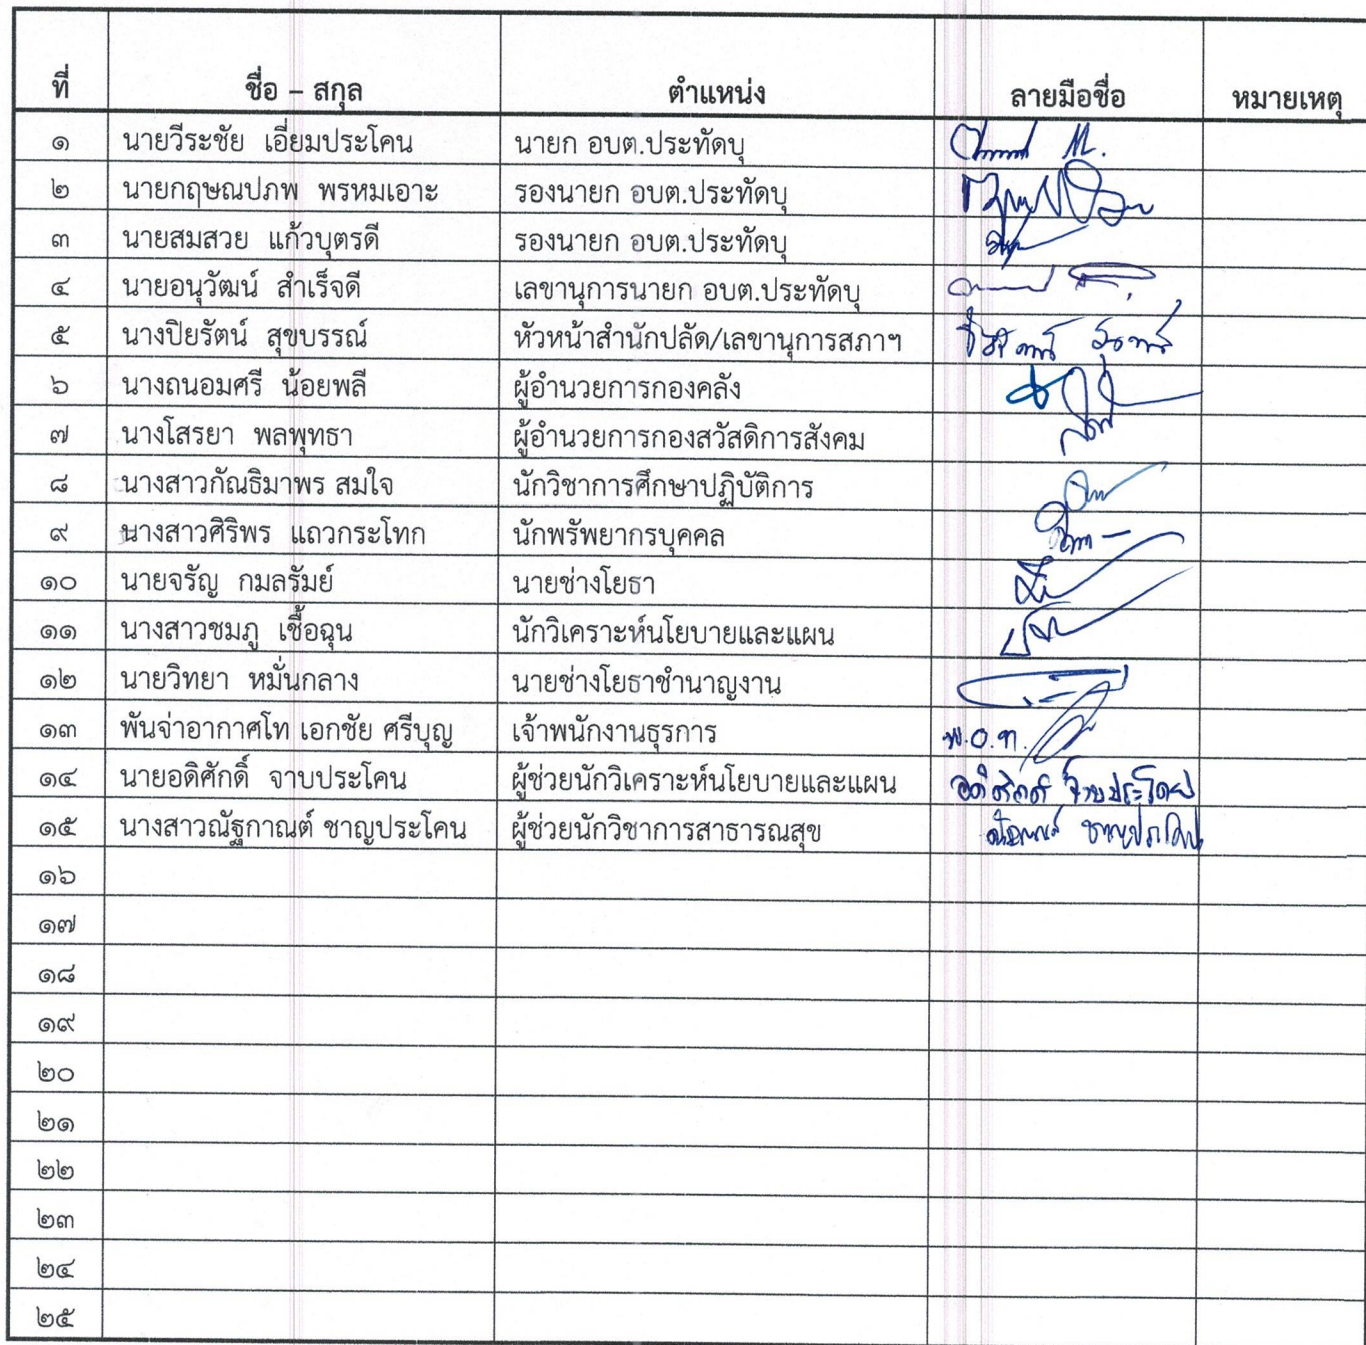 ที่ ชื่อ – สกุล ตำแหน่ง ลายมือชื่อ หมายเหตุ
๑ นายวีระชัย เอี่ยมประโคน นายก อบต.ประทัดบุ
๒ นายกฤษณปภพ พรหมเอาะ รองนายก อบต.ประทัดบุ
๓ นายสมสวย แก้วบุตรดี รองนายก อบต.ประทัดบุ
๔ นายอนุวัฒน์ สำเร็จดี เลขานุการนายก อบต.ประทัดบุ
๕ นางปิยรัตน์ สุขบรรณ์ หัวหน้าสำนักปลัด/เลขานุการสภาฯ
๖ นางถนอมศรี น้อยพลี ผู้อำนวยการกองคลัง
๗ นางโสรยา พลพุทธา ผู้อำนวยการกองสวัสดิการสังคม
๘ นางสาวกัณธิมาพร สมใจ นักวิชาการศึกษาปฏิบัติการ
๙ นางสาวศิริพร แถวกระโทก นักพรัพยากรบุคคล
๑๐ นายจรัญ กมลรัมย์ นายช่างโยธา
๑๑ นางสาวชมภู เชื้อฉุน นักวิเคราะห์นโยบายและแผน
๑๒ นายวิทยา หมั่นกลาง นายช่างโยธาชำนาญงาน
๑๓ พันจ่าอากาศโท เอกชัย ศรีบุญ เจ้าพนักงานธุรการ พ.อ.ท.
๑๔ นายอดิศักดิ์ จาบประโคน ผู้ช่วยนักวิเคราะห์นโยบายและแผน อดิศักดิ์ จาบประโคน
๑๕ นางสาวณัฐกาณต์ ชาญประโคน ผู้ช่วยนักวิชาการสาธารณสุข
๑๖
๑๗
๑๘
๑๙
๒๐
๒๑
๒๒
๒๓
๒๔
๒๕